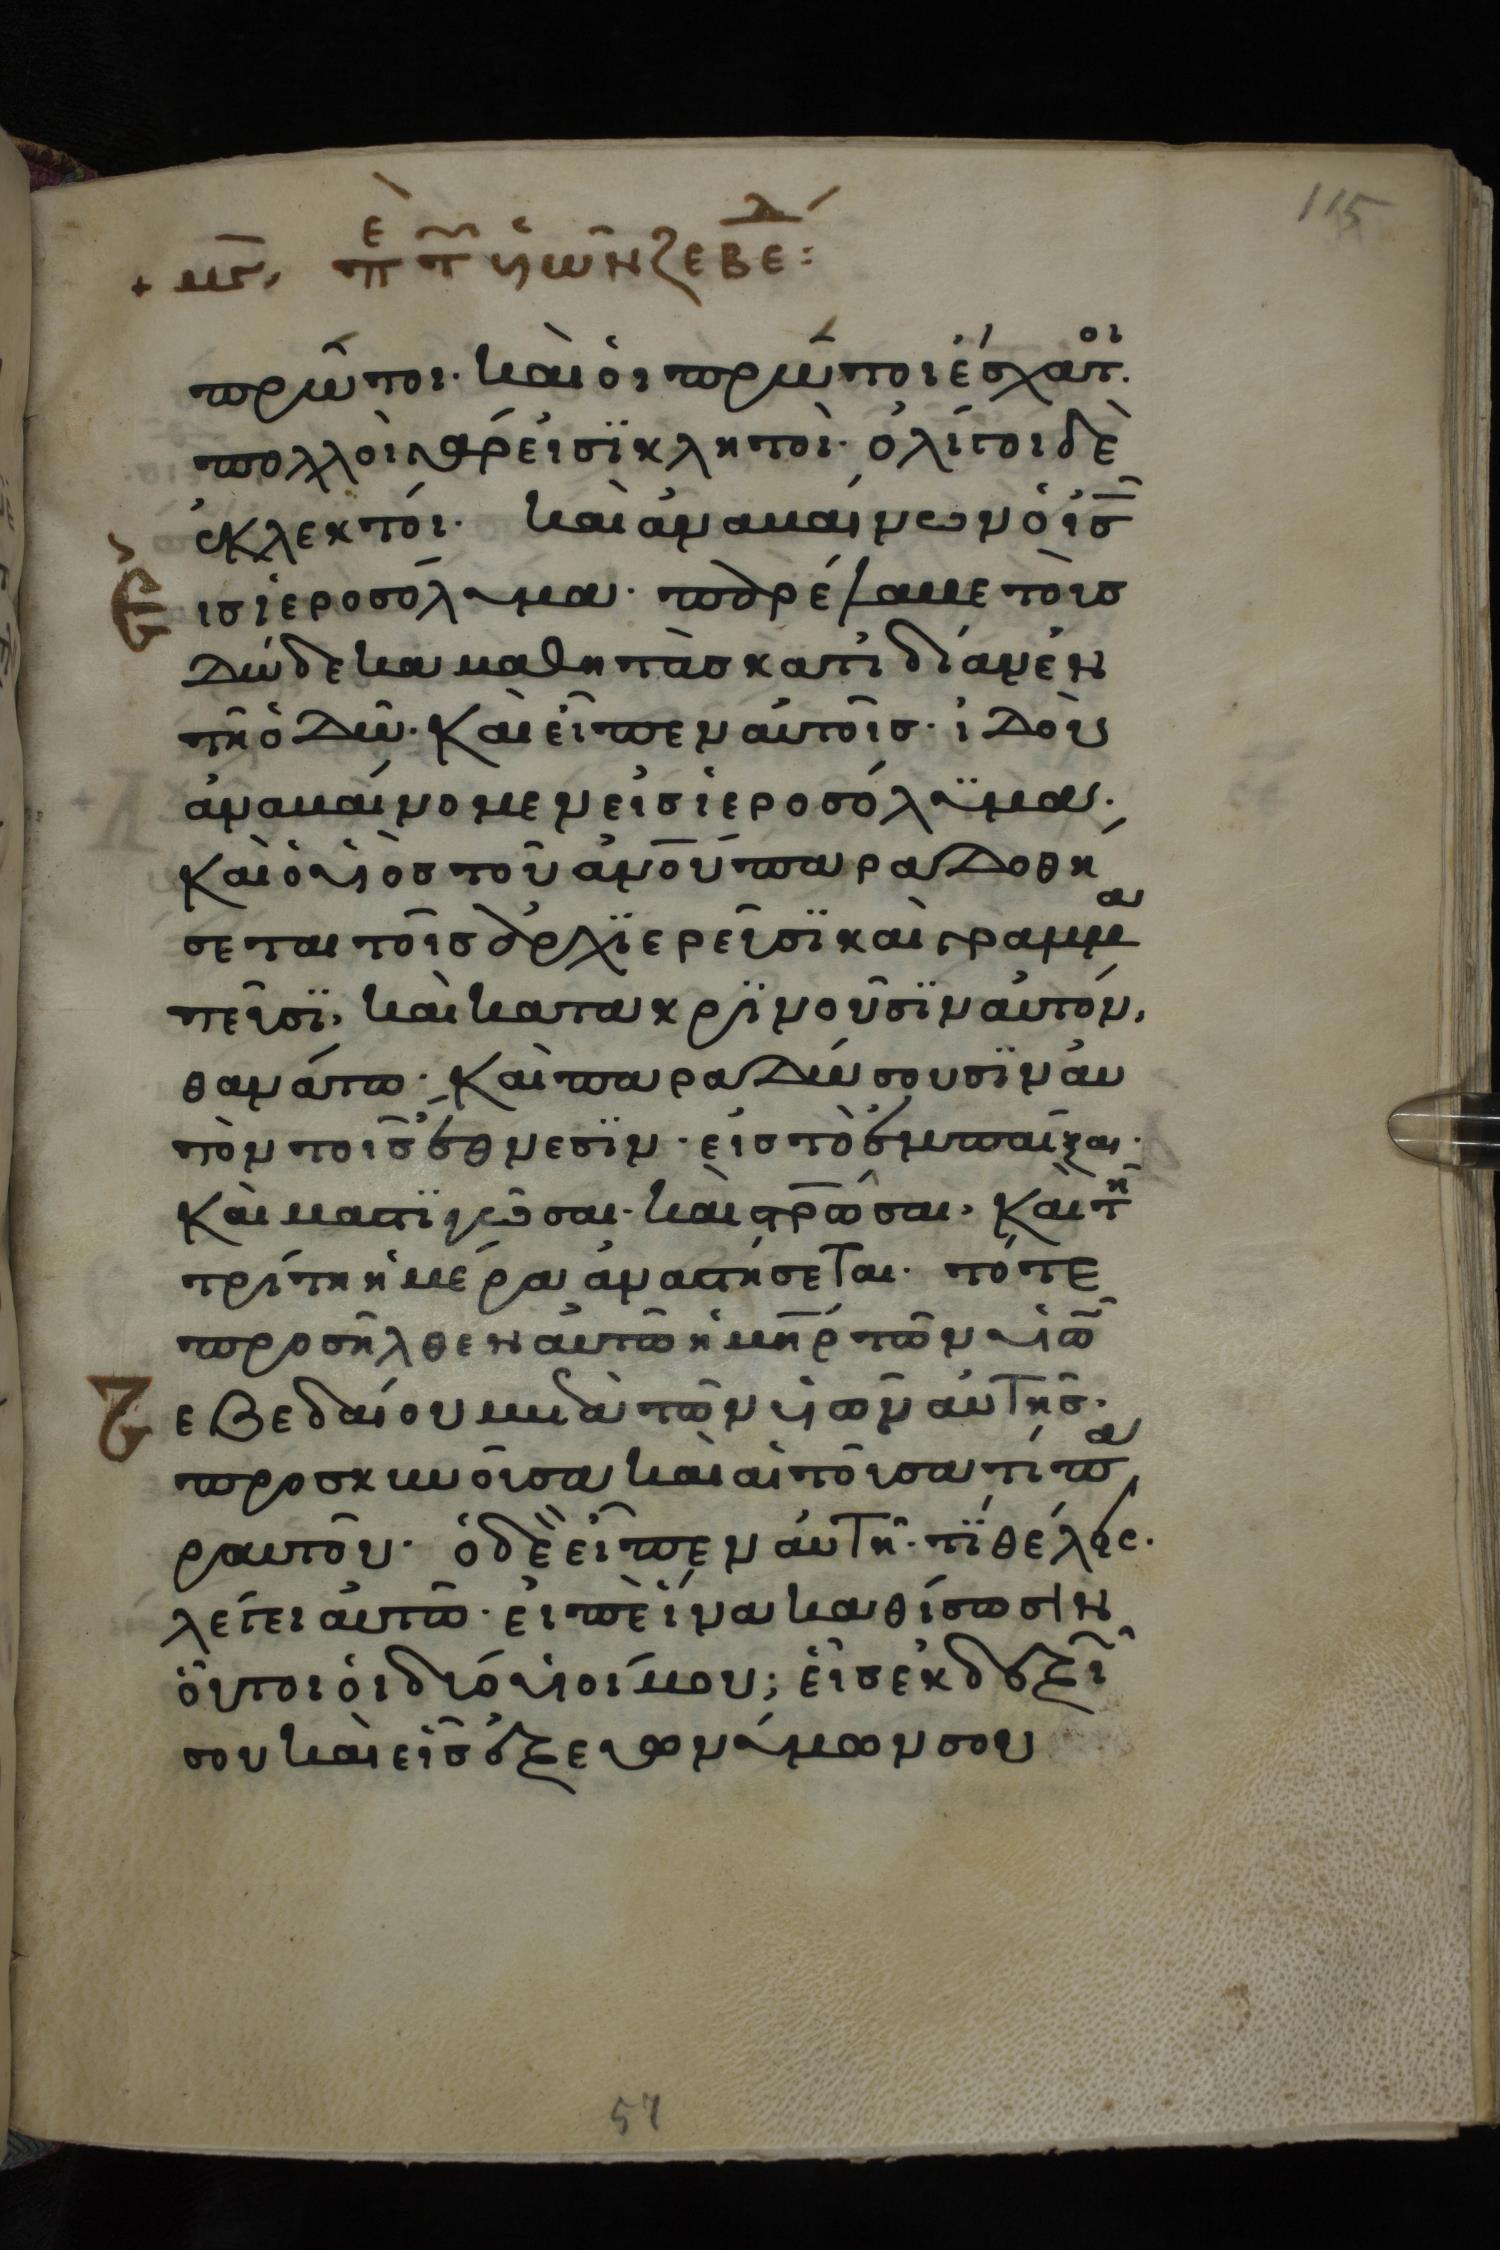 115
+ μϛ, πε τ υἱῶν ζεβεδ:
πρῶτοι· καὶ οἱ πρῶτοι ἔσχατοι.
πολλοὶ γάρ εἰσϊ κλητοὶ· ὀλίγοι δὲ
ἐκλεκτόι· καὶ ἀναβαίνων ὁ ἰς
ισ ἱεροσόλυμα· παρέλαβε τοὺσ
δώδεκα μαθητὰσ κατιδίαν ἐν
τῆ ὁδῶ· καὶ εἶπεν αὐτοῖσ· ἰδοὺ
ἀναβαίνομεν εἰσ ἱεροσόλϋμα·
καὶ ὁ υἱὸσ τοῦ ἀνου παραδοθή
σεται τοῖσ ἀρχϊερεῦσϊ καὶ γραμμα
τεῦσϊ, καὶ κατακρϊνοῦσϊν αὐτόν,
θανάτω· καὶ παραδώσουσϊν αυ
τὸν τοῖσ ἔθνεσϊν· εἰσ τὸ ἐμπαίξαι·
καὶ μαστϊγῶσαι· καὶ στρῶσαι· καὶ τη
τρίτη ἡμέρα ἀναστήσεται· τότε
προσῆλθεν αὐτῶ ἡ μηρ τῶν υἱῶ
Ζεβεδαίου μετὰ τῶν υἱῶν αὐτῆσ·
προσκυνοῦσα καὶ αἰτοῦσα τί πα
ραυτοῦ· ὁ δὲ εἶπεν αὐτῆ· τϊ θέλεις·
λέγει αὐτῶ· εἰπὲ ἵνα καθίσωσιν
οὗτοι οἱ δύο υἱοί μου; εἷσ ἐκ δεξϊ
σου καὶ εἷσ ἐξ εὐωνύμων σου
57